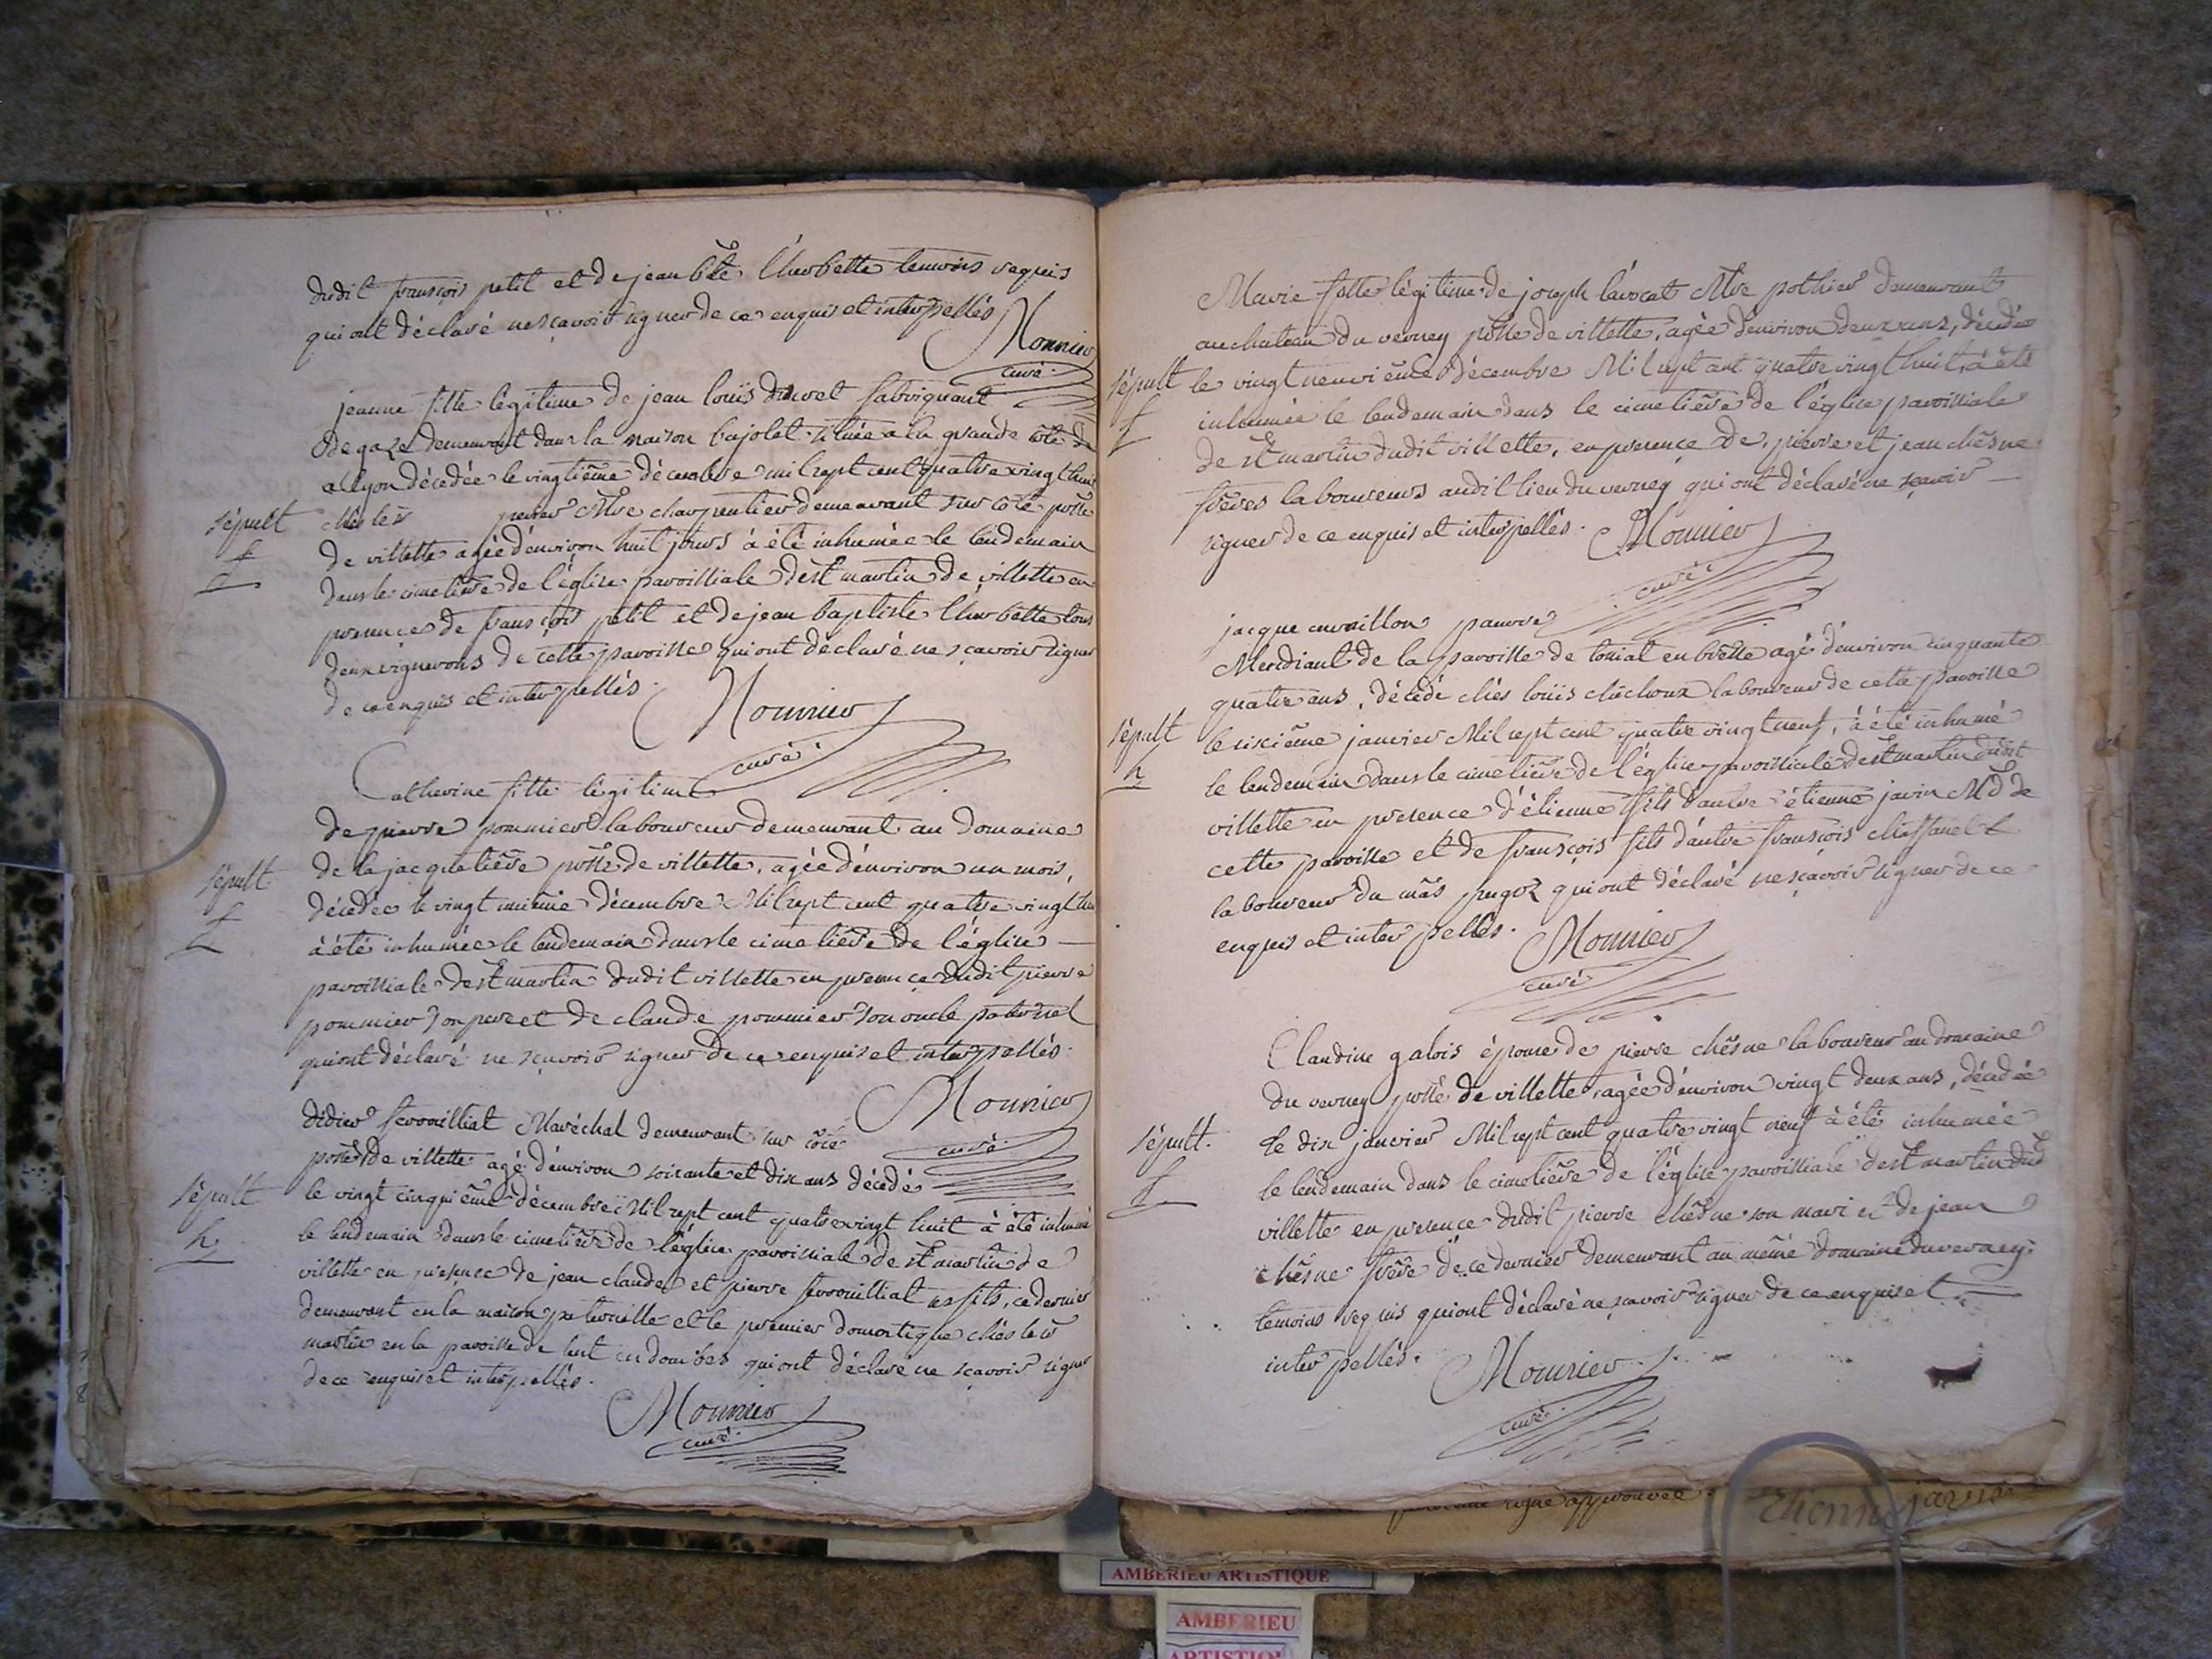 dudit françois petit et de jean bte Chorbette temoins requis
qui ont déclaré ne sçavoir signer de ce enquis et interpellés
Monnier
curé
jeanne fille légitime de jean loüis duivet fabriquant
de gaze demeurant dans la maison bajolet située a la grande côte de
a lyon décédée le vingtième décembre mil sept cent quatre vingt huit
sépult
f
chés le sr perier Mtre charpentier demeurant sur côte psse
de villette agée d'environ huit jours à été inhumée le lendemain
dans le cimetière de l'église paroissiale de st martin de villette en
presence de françois petit et de jean baptiste Chorbette tous
deux vignerons de cette paroisse qui ont déclaré ne sçavoir signer
de ce enquis et interpellés.
Monnier
curé
Catherine fille légitime
de pierre pommier laboureur demeurant au domaine
de la jacquetière psse de villette, agée d'environ un mois,
sépult
f
décédée le vingt unième décembre Mil sept cent quatre vingt huit
à été inhumée le lendemain dans le cimetière de l'église
paroissiale de st martin dudit villette en presence dudit pierre
pommier son pere et de claude pommier son oncle paternel
qui ont déclaré ne sçavoir signer de ce enquis et interpellés.
Monnier
curé
didier ferrouilliat Maréchal demeurant sur côte
psse de villette agé d'environ soixante et dix ans décédé
sépult
h
le vingt cinquième décembre Mil sept cent quatre vingt huit à été inhumé
le lendemain dans le cimetière de l'église paroissiale de st martin de
villette en presence de jean claude et pierre ferrouilliat ses fils, ce dernier
demeurant en la maison paternelle et le premier domestique chés le sr
martin en la paroisse de lent en dombes qui ont déclaré ne sçavoir signer
de ce enquis et interpellés.
Monnier
curé
Marie fille légitime de joseph lavocat Mtre pothier demeurant
au chateau du verney psse de villette, agée d'environ deux ans, décédée
sépult
f
le vingt neuvième décembre Mil sept cent quatre vingt huit, à été
inhumée le lendemain dans le cimetière de l'église paroissiale
de st martin dudit villette, en presence de pierre et jean chêsne
frères laboureurs audit lieu du verney qui ont déclaré ne sçavoir
signer de ce enquis et interpellés.
Monnier
curé
jacque cuvaillon pauvre
Mendiant de la paroisse de tossiat en bresse agé d'environ cinquante
quatre ans, décédé chés loüis chichoux laboureur de cette paroisse
sépult
h
le sixième janvier Mil sept cent quatre vingt neuf, à été inhumé
le lendemain dans le cimetière de l'église paroissiale de st martin dudit
villette en presence d'étienne fils d'autre étienne javin Md de
cette paroisse et de françois fils d'autre françois chaffanel
laboureur du mâs pugoz qui ont déclaré ne sçavoir signer de ce
enquis et interpellés.
Monnier
curé
Claudine galois épouse de pierre chêsne laboureur au domaine
du verney psse de villette, agée d'environ vingt deux ans, décédée
sépult.
f
le dix janvier Mil sept cent quatre vingt neuf à été inhumée
le lendemain dans le cimetière de l'église paroissiale de st martin dud
villette en presence dudit pierre chêsne son mari et de jean
chêsne frère de ce dernier demeurant au même domaine du verney
temoins requis qui ont déclaré ne sçavoir signer de ce enquis et
interpellés.
Monnier
curé
ligne approuvée
Etienne javin
AMBERIEU ARTISTIQUE
AMBERIEU
ARTISTIQUE